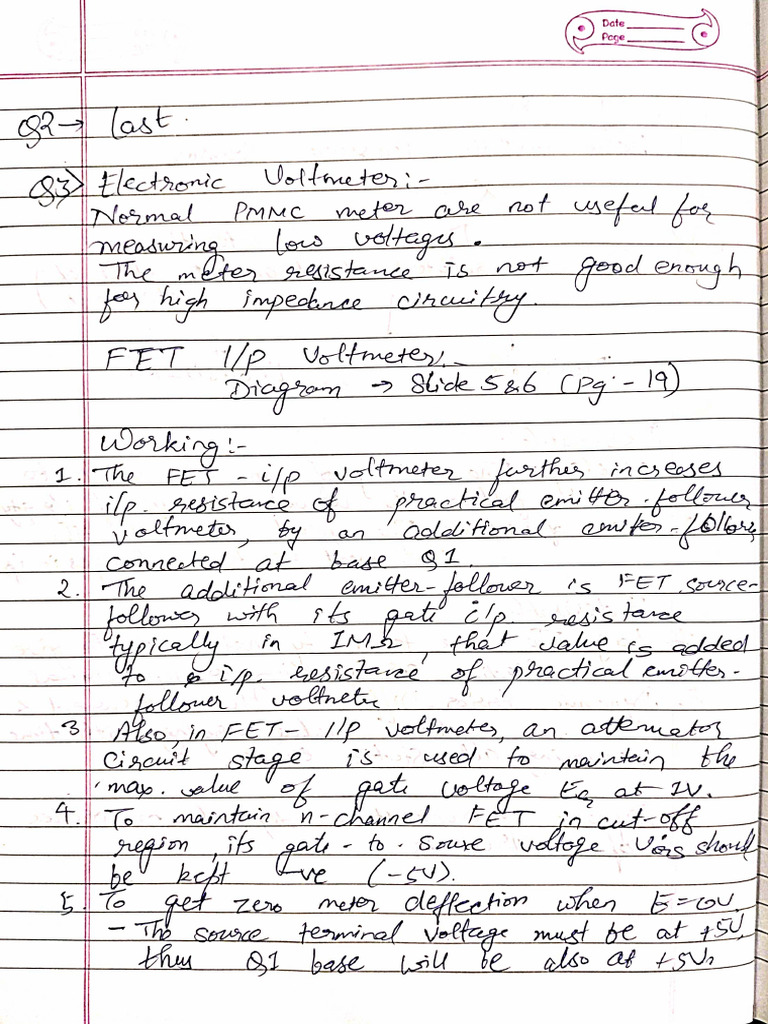 Date
Page
Q2 → Last.
Q3> Electronic Voltmeter:-
Normal PMMC meter are not useful for
measuring low voltages.
The meter resistance is not good enough
for high impedance circuitry.
FET I/p Voltmeter:-
Diagram → Slide 5&6 (Pg:- 19)
Working:-
1. The FET - i/p voltmeter further increases
i/p. resistance of practical emitter-follower
voltmeter, by an additional emitter-follower,
connected at base Q1.
2. The additional emitter-follower is FET source-
follower with its gate i/p. resistance
typically in 1MΩ, that value is added
to i/p. resistance of practical emitter-
follower voltmeter
3 Also, in FET- I/p voltmeter, an attenuator
circuit stage is used to maintain the
max. value of gate voltage EG at 1V.
4. To maintain n-channel FET in cut-off
region, its gate-to-sourse voltage VGS should
be kept -ve (-5V).
5. To get zero meter deflection when E=0V
- The source terminal voltage must be at +5V,
thus Q1 base will be also at +5V.